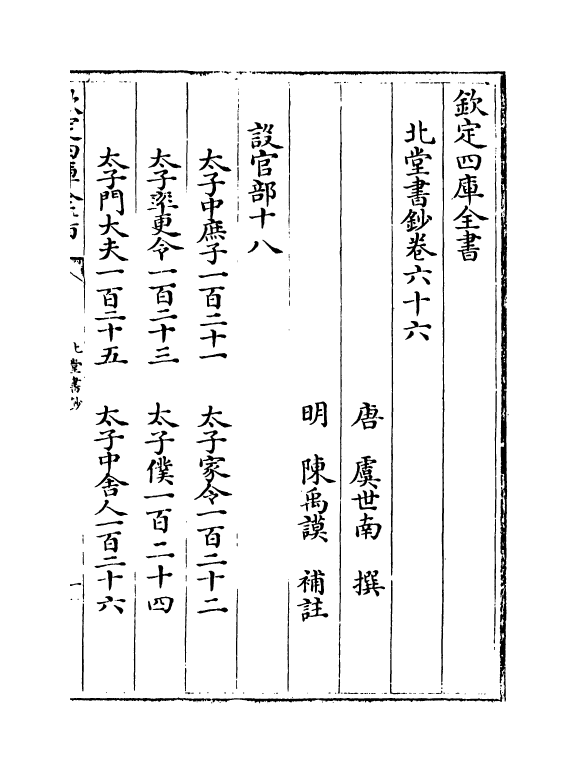 欽定四庫全書
北堂書鈔卷六十六
唐 虞世南 撰
明 陳禹謨 補註
設官部十八
太子中庶子一百二十一 太子家令一百二十二
太子率更令一百二十三 太子僕一百二十四
太子門大夫一百二十五 太子中舍人一百二十六
欽定四庫全書 北堂書鈔